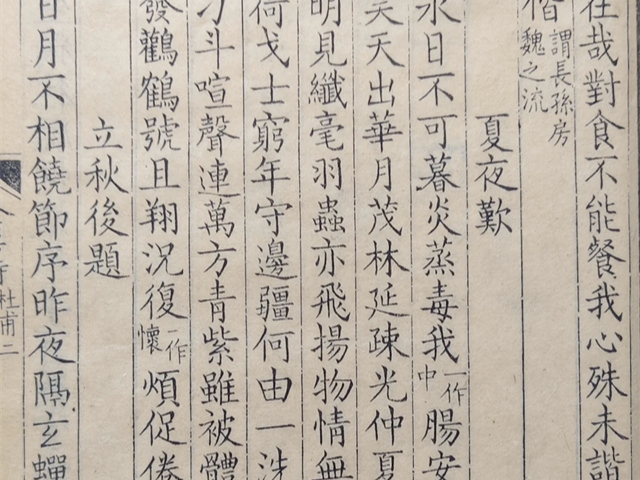 在哉對食不能餐我心殊未諧
偕謂長孫房魏之流
夏夜歎
永日不可暮炎蒸毒我一作中腸安
昊天出華月茂林延疎光仲夏
明見纖毫羽蟲亦飛揚物情無
荷戈士窮年守邊疆何由一洗
刁斗喧聲連萬方青紫雖被體
發鸛鶴號且翔況復一作懷煩促倦
立秋後題
日月不相饒節序昨夜隔玄蟬
杜甫二